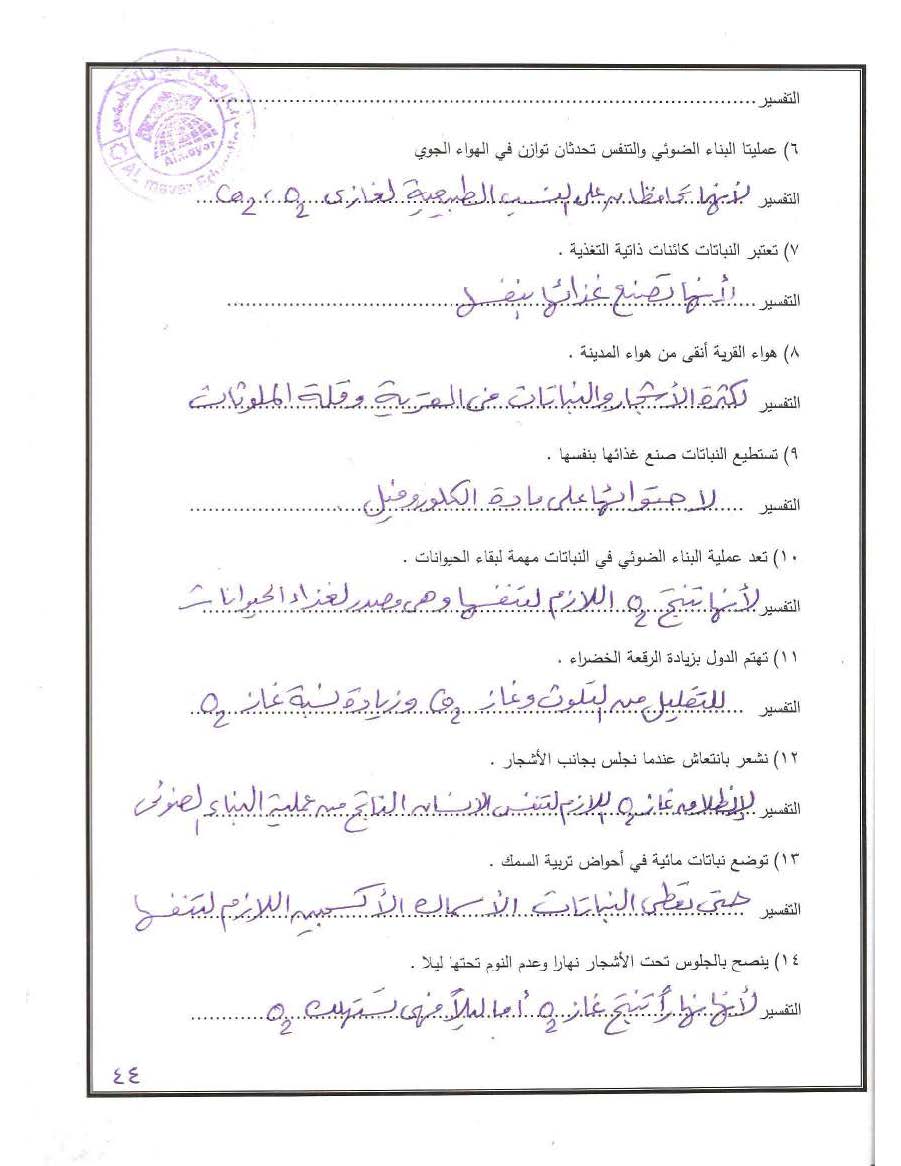 التفسير ................................................
٦) عمليتا البناء الضوئي والتنفس تحدثان توازن في الهواء الجوي
التفسير لأنها تحافظان على النسب الطبيعية لغازى O2 ، CO2
٧) تعتبر النباتات كائنات ذاتية التغذية .
التفسير لأنها تصنع غذائها بنفسها
٨) هواء القرية أنقى من هواء المدينة .
التفسير لكثرة الأشجار والنباتات فى القرية وقلة الملوثات
٩) تستطيع النباتات صنع غذائها بنفسها .
التفسير لاحتوائها على مادة الكلوروفيل
١٠) تعد عملية البناء الضوئي في النباتات مهمة لبقاء الحيوانات .
التفسير لأنها تنتج O2 اللازم لتنفسها وهى مصدر لغذاء الحيوانات
١١) تهتم الدول بزيادة الرقعة الخضراء .
التفسير للتقليل من التلوث وغاز CO2 وزيادة نسبة غاز O2
١٢) نشعر بانتعاش عندما نجلس بجانب الأشجار .
التفسير لإنطلاق غاز O2 اللازم لتنفس الانسان الناتج من عملية البناء الضوئى
١٣) توضع نباتات مائية في أحواض تربية السمك .
التفسير حتى تعطى النباتات الأسماك الأكسجين اللازم لتنفسها
١٤) ينصح بالجلوس تحت الأشجار نهارا وعدم النوم تحتها ليلا .
التفسير لأنها نهاراً تنتج غاز O2 أما ليلاً فهى تستهلك O2
٤٤
Almayar